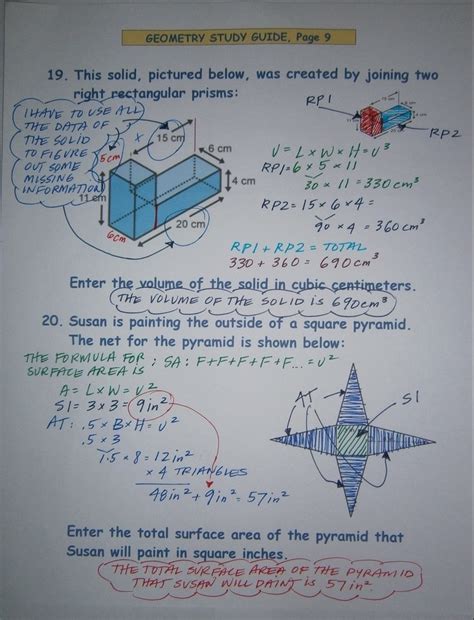 GEOMETRY STUDY GUIDE, Page 9
19. This solid, pictured below, was created by joining two
right rectangular prisms:
I HAVE TO USE ALL
THE DATA OF
THE SOLID
TO FIGURE
OUT SOME
MISSING
INFORMATION
X
15 cm
6 cm
5cm
4 cm
11 cm
20 cm
6cm
RP1
RP2
V = L x W x H = U³
RP1 = 6 x 5 x 11
30 x 11 = 330 cm³
RP2 = 15 x 6 x 4 =
90 x 4 = 360 cm³
RP1 + RP2 = TOTAL
330 + 360 = 690 cm³
Enter the volume of the solid in cubic centimeters.
THE VOLUME OF THE SOLID IS 690cm³
20. Susan is painting the outside of a square pyramid.
The net for the pyramid is shown below:
THE FORMULA FOR
SURFACE AREA IS : SA: F+F+F+F+F... = U²
A = L x W = U²
S1 = 3 x 3 = 9in²
AT: .5 x B x H = U²
.5 x 3
1.5 x 8 = 12in²
x 4 TRIANGLES
48in² + 9in² = 57in²
AT
S1
Enter the total surface area of the pyramid that
Susan will paint in square inches.
THE TOTAL SURFACE AREA OF THE PYRAMID
THAT SUSAN WILL PAINT IS 57in²